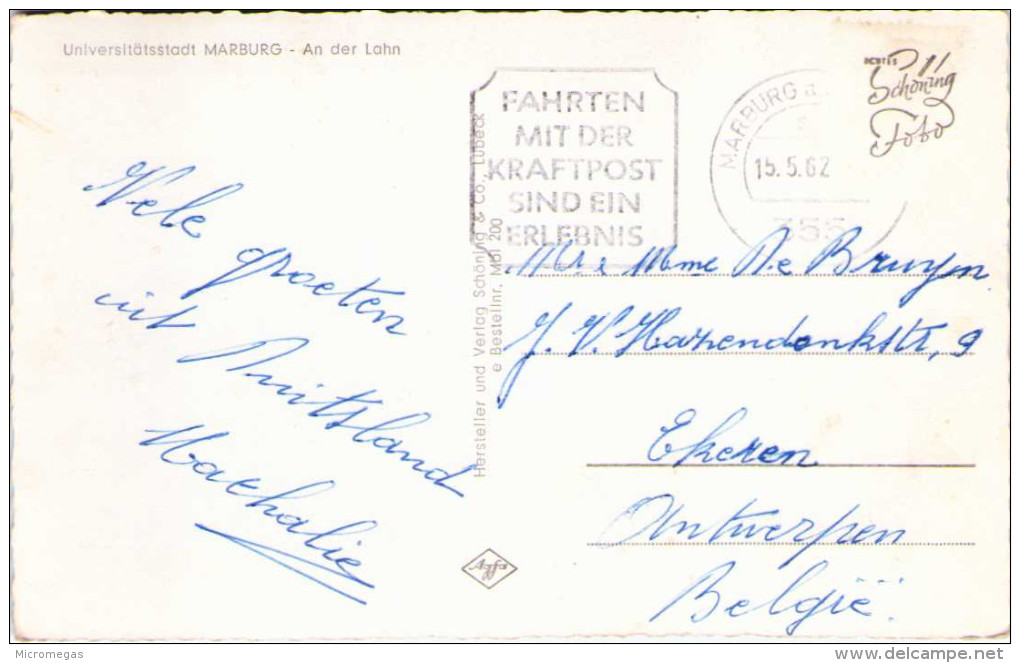 Universitätsstadt MARBURG - An der Lahn
FAHRTEN
MIT DER
KRAFTPOST
SIND EIN
ERLEBNIS
MARBURG a.
15.5.62
355
ECHTES
Schöning
Foto
Vele groeten
uit Duitsland
Nathalie
Hersteller und Verlag Schöning & Co., Lübeck
e Bestellnr. Mbl 200
Mr. e Mme De Bruyn
J. V. Hazendonkstr, 9
Ekeren
Antwerpen
België.
Agfa
Micromegas
delcampe.net